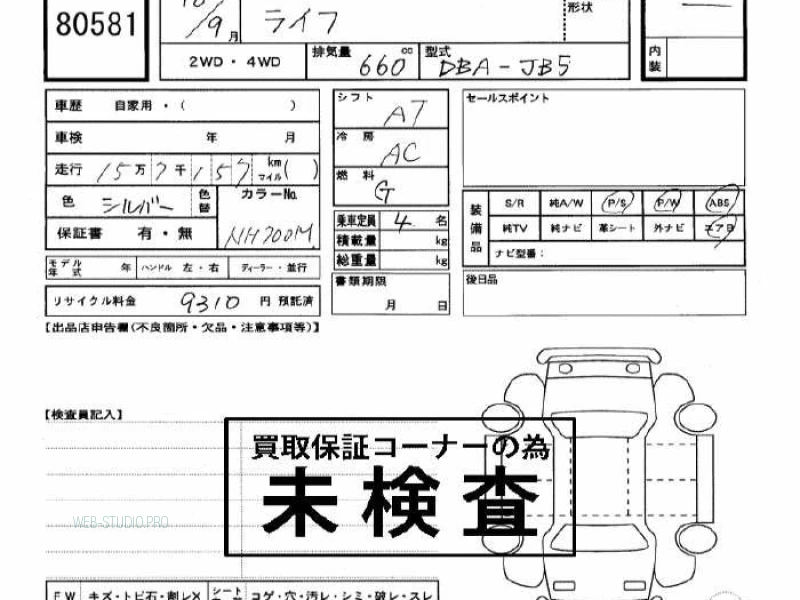 80581
18/9月
ライフ
形状
2WD・4WD
排気量 660 cc
型式 DBA-JB5
内装
車歴 自家用・( )
車検 年 月
走行 15万7千157 km マイル( )
色 シルバー 色替
カラーNo. NH700M
保証書 有・無
モデル年式 年 ハンドル 左・右 ディーラー・並行
リサイクル料金 9310 円 預託済
シフト AT
冷房 AC
燃料 G
乗車定員 4 名
積載量 kg
総重量 kg
書類期限
月 日
セールスポイント
装備品
S/R 純A/W P/S P/W ABS
純TV 純ナビ 革シート 外ナビ エアB
ナビ型番:
後日品
【出品店申告欄(不良箇所・欠品・注意事項等)】
【検査員記入】
買取保証コーナーの為
未検査
WEB-STUDIO.PRO
FW キズ・トビ石・割レX シート コゲ・穴・汚レ・シミ・破レ・スレ